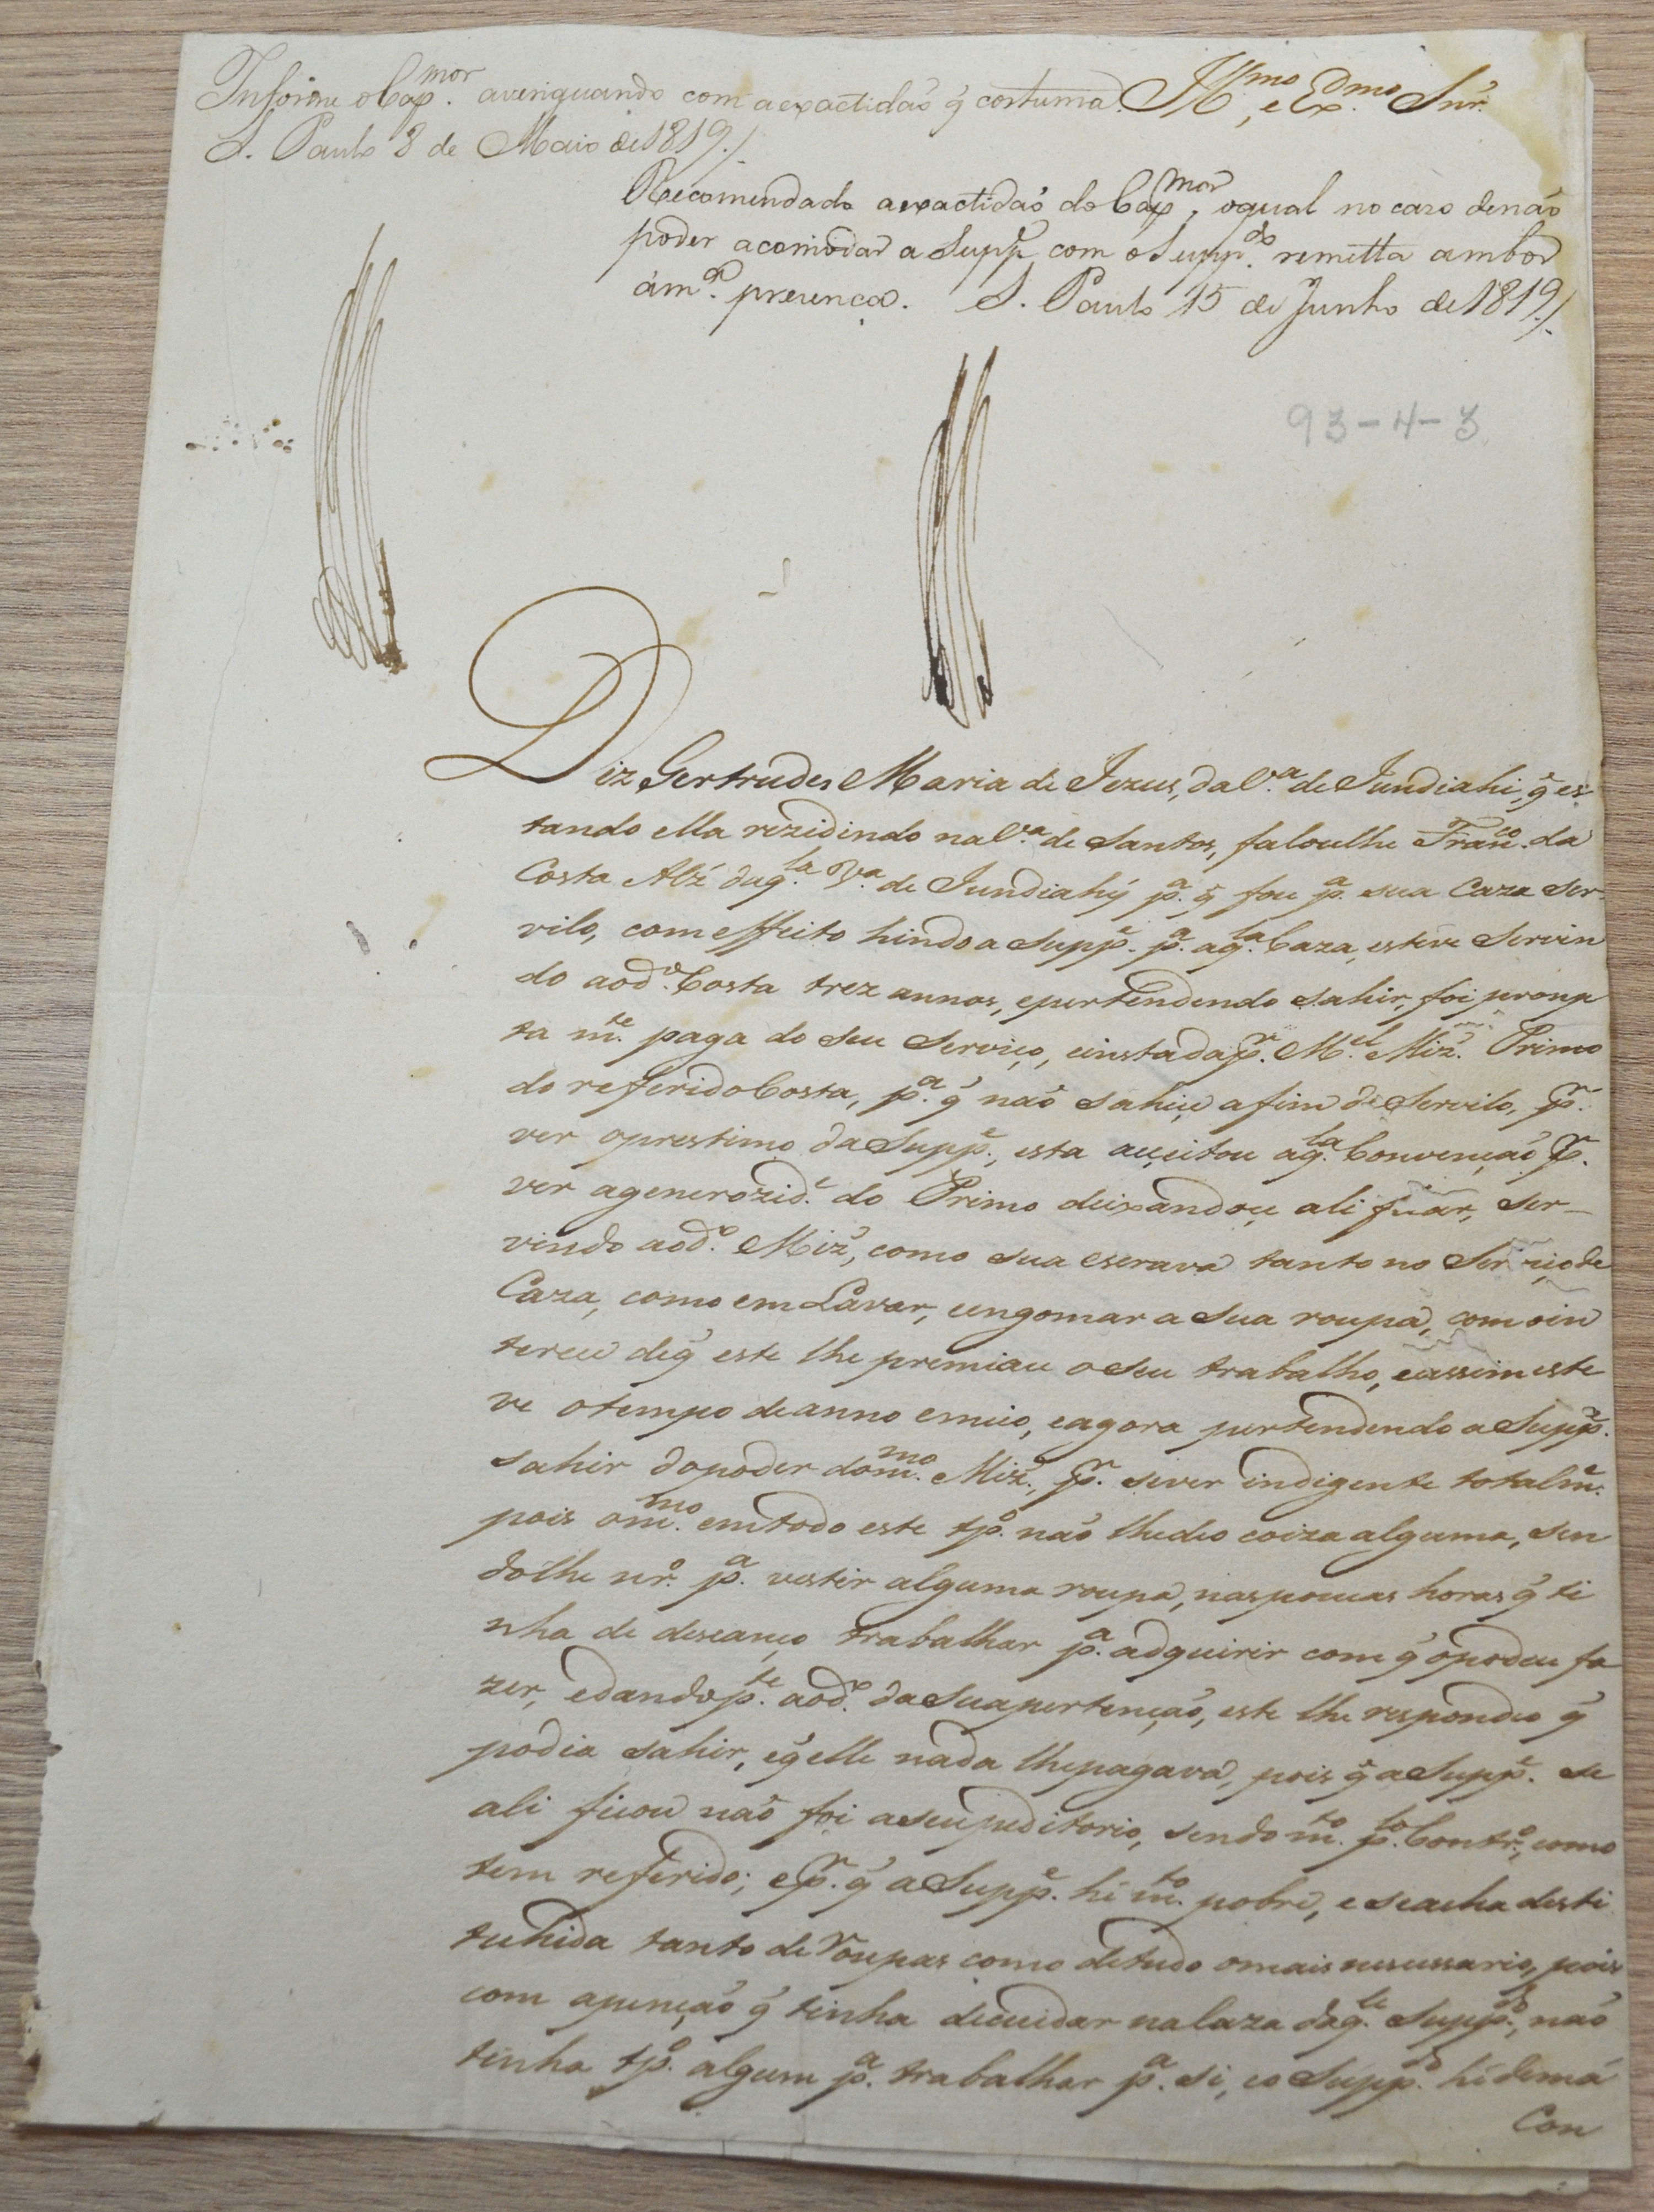 Informe o Cap.mor averiguando com a exactidaõ q̃ costuma. Ill.mo e Ex.mo Snr.
S. Paulo 8 de Maio de 1819./
Recomendado a exactidaõ do Cap.mor, o qual no cazo de naõ
poder acomodar a Supp.e com o Supp.do remetta ambos
á m.a presença. S. Paulo 15 de Junho de 1819/.
93-4-3
Diz Gertrudes Maria de Jezus, da V.a de Jundiahi, q̃ es
tando ella rezidindo na V.a de Santos, faloulhe Fran.co da
Costa Alz' daq.la V.a de Jundiahÿ p.a q̃ fose p.a sua Caza ser-
vilo, com effeito hindo a Supp.e p.a aq.la Caza, esteve Servin
do aod.o Costa trez annos, epertendendo sahir, foi promp
ta m.te paga do seu Serviço, einstada p.r M.el Miz'. Primo
do referido Costa, p.a q̃ naõ sahise afim de Servilo, p.r
ver oprestimo da Supp.e, esta aceitou aq.la Convençaõ p.r
ver agenerozid.e do Primo deixandose ali ficar, Ser-
vindo aod.o Miz', como sua escrava tanto no Serviço de
Caza, como em Lavar, eengomar a Sua roupa, com oin
terese deq̃ este lhe premiase o Seu trabalho, eassim este
ve otempo de anno emeio, eagora pertendendo a Supp.e
sahir do poder dom.mo Miz', p.r sever indigente totalm.e
pois om.mo emtodo este tp.o naõ lhedeo coiza alguma, sen
dolhe ner.o p.a vestir alguma roupa, nas poucas horas q̃ ti
nha de descanço trabalhar p.a adquirir com q̃ opodese fa
zer, edando p.te aod.o da Sua pertençaõ, este lhe respondeo q̃
podia sahir, eq̃ elle nada lhe pagava, pois q̃ a Supp.e se
ali ficou naõ foi aseu peditorio, sendo m.to p.lo Contr.o, como
tem referido; e p.r q̃ a Supp.e hé m.to pobre, e seacha desti
tuhida tanto de Roupas como detudo omais nesessario, pois
com apençaõ q̃ tinha decuidar na Caza daq.le Supp.do, naõ
tinha tp.o algum p.a trabalhar p.a si, eo Supp.do hé demá
Con